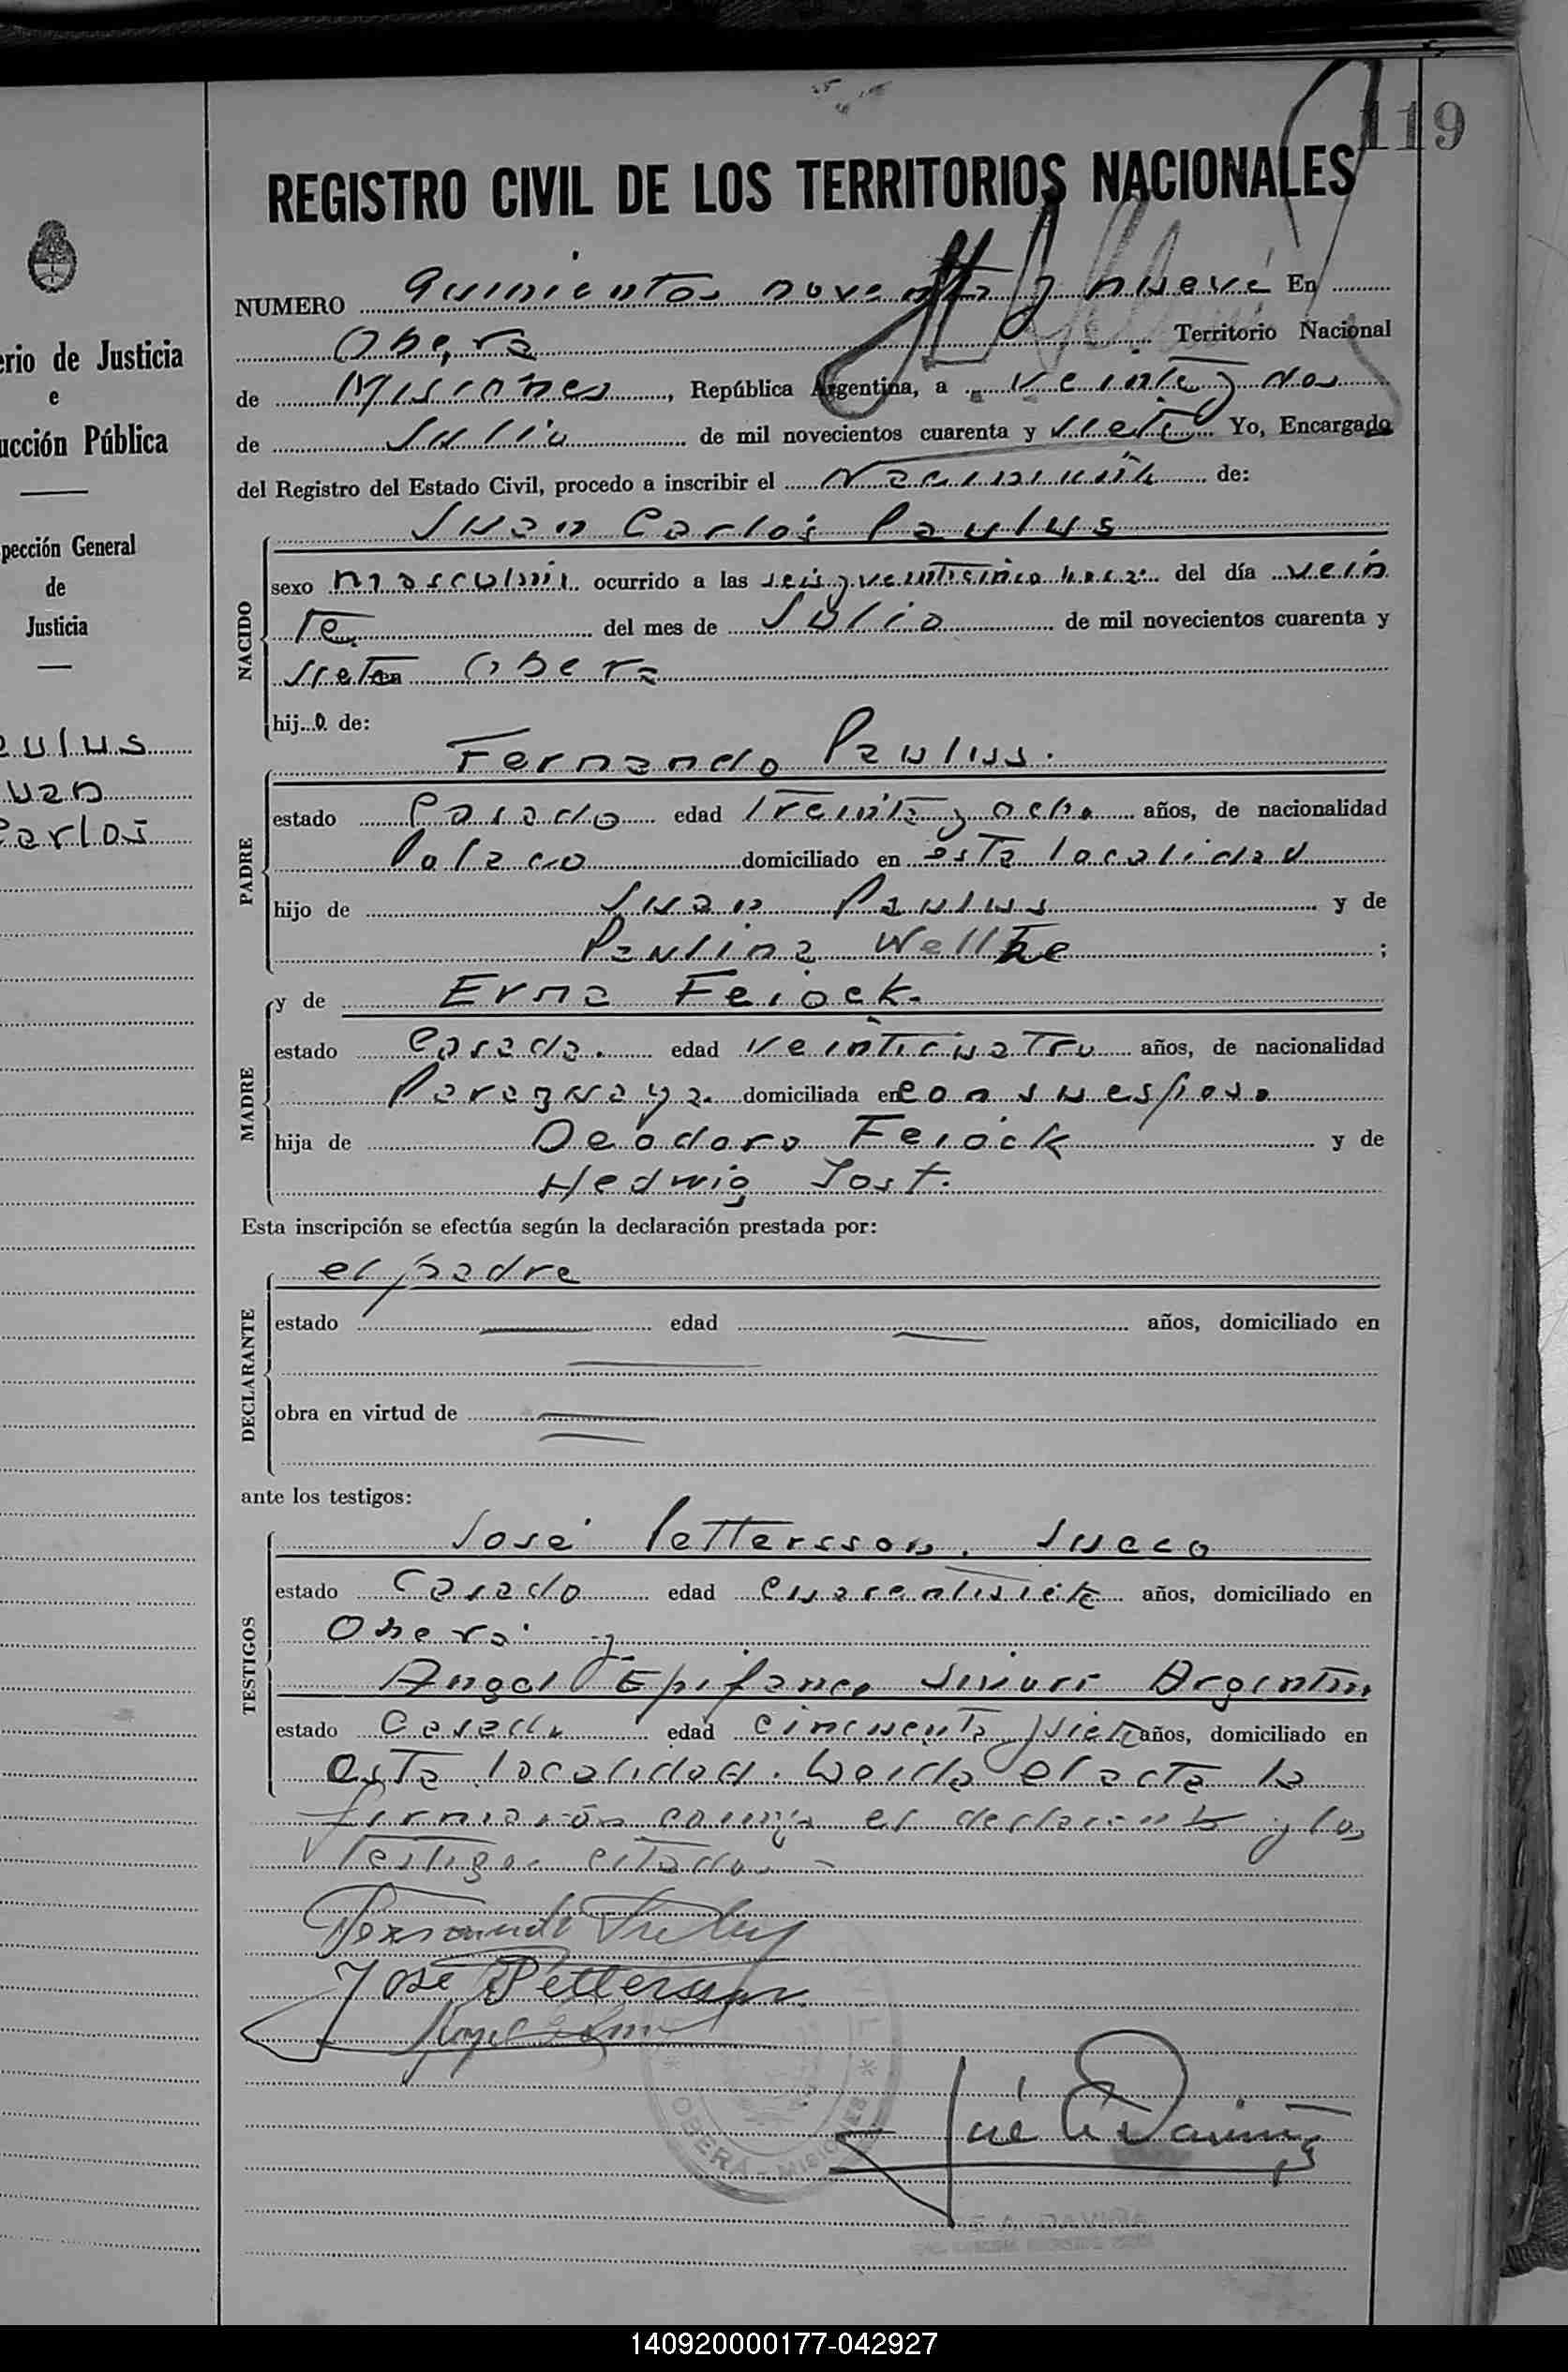 119
REGISTRO CIVIL DE LOS TERRITORIOS NACIONALES
NUMERO Quinientos noventa y nueve En
Obera Territorio Nacional
de Misiones, República Argentina, a veinte y dos
de Julio de mil novecientos cuarenta y siete Yo, Encargado
del Registro del Estado Civil, procedo a inscribir el Nacimiento de:
Juan Carlos Paulus
NACIDO
sexo masculino ocurrido a las seis y veinticinco horas del día vein
te del mes de Julio de mil novecientos cuarenta y
siete en Obera
hijo de:
Fernando Paulus.
PADRE
estado Casado edad treinta y ocho años, de nacionalidad
Polaco domiciliado en esta localidad
hijo de Juan Paulus y de
Paulina ;
y de Erna Feiock.
MADRE
estado Casada. edad veinticuatro años, de nacionalidad
Paraguaya. domiciliada en con su esposo
hija de Deodoro Feiock y de
Hedwig Jost.
Esta inscripción se efectúa según la declaración prestada por:
el padre
DECLARANTE
estado edad años, domiciliado en
obra en virtud de
ante los testigos:
José Pettersson. Sueco
TESTIGOS
estado Casado edad cuarentisiete años, domiciliado en
Oberá y
Angel Epifaneo Argentino
estado Casado edad cincuenta y siete años, domiciliado en
esta localidad. Leida el acta la
firmarón conmigo el declarante y los
testigos citados
José Pettersson
OBERÁ - MISIONES
erio de Justicia
e
ucción Pública
pección General
de
Justicia
aulus
uan
Carlos
140920000177-042927